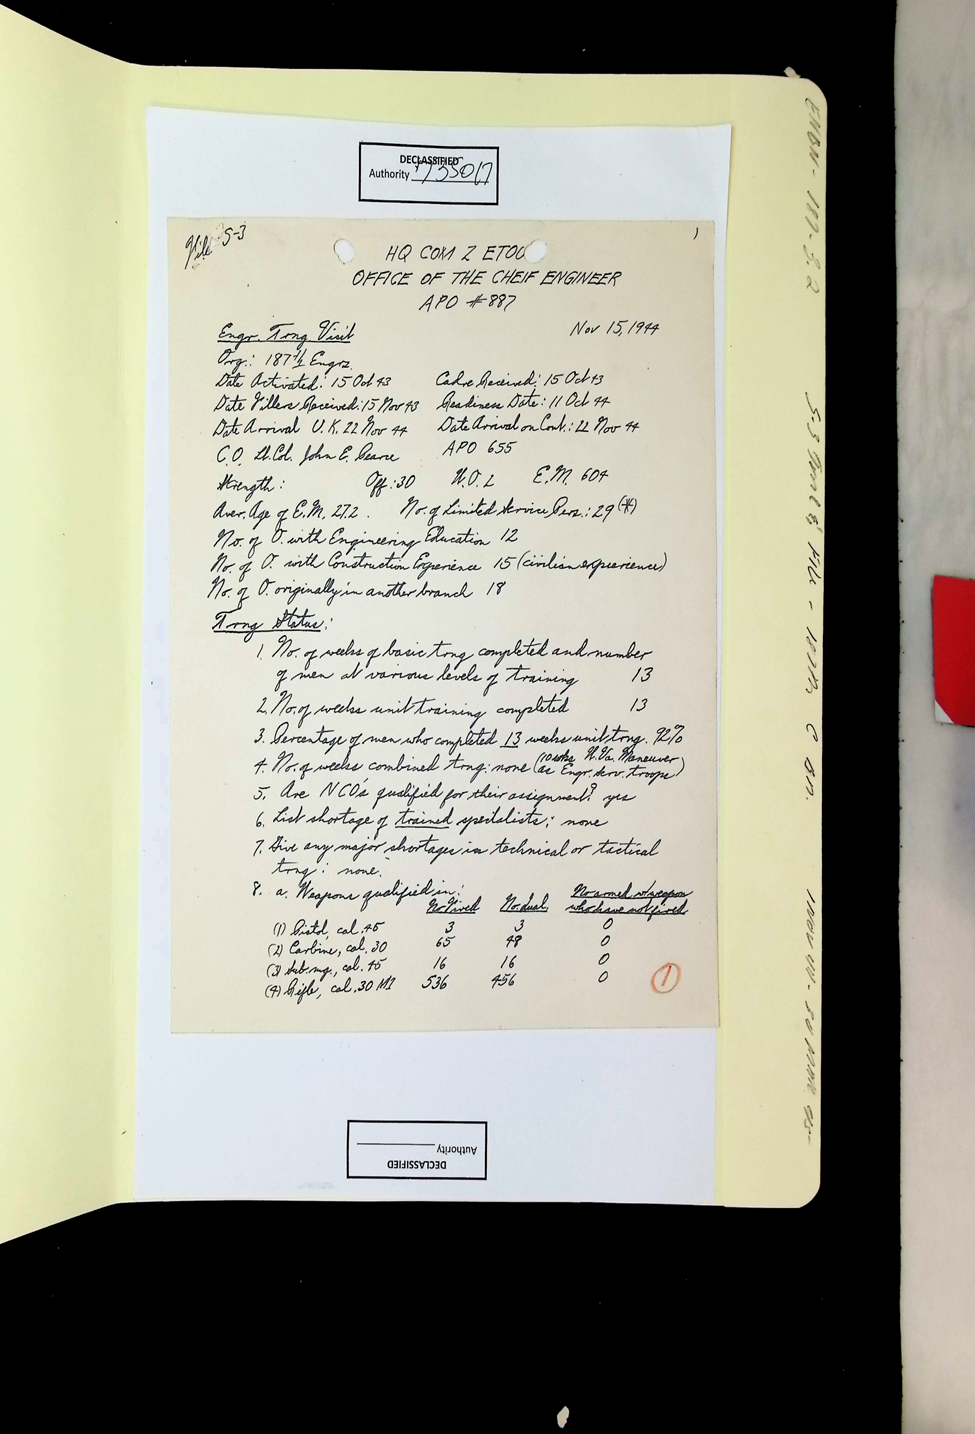 DECLASSIFIED
Authority 775017
File S-3
1
HQ COM Z ETOU
OFFICE OF THE CHEIF ENGINEER
APO #887
Nov 15, 1944
Engr. Trng Visit
Org.: 187th Engrs.
Date Activated: 15 Oct 43 Cadre Received: 15 Oct 43
Date Fillers Received: 15 Nov 43 Readiness Date: 11 Oct 44
Date Arrival U.K. 22 Nov 44 Date Arrival on Cont.: 22 Nov 44
C.O. Lt. Col. John E. Pearce APO 655
Strength: Off: 30 W.O. 2 E.M. 604
Aver. Age of E.M. 27.2. No. of Limited Service Pers.: 29 (*)
No. of O. with Engineering Education 12
No. of O. with Construction Experience 15 (civilian experience)
No. of O. originally in another branch 18
Trng Status:
1. No. of weeks of basic trng completed and number
of men at various levels of training 13
2. No. of weeks unit training completed 13
3. Percentage of men who completed 13 weeks unit trng. 92%
4. No. of weeks combined trng: none (10 wks W. Va. Maneuver
as Engr. serv. troops)
5. Are NCO's qualified for their assignment? yes
6. List shortage of trained specialists: none
7. Give any major shortages in technical or tactical
trng: none.
8. a. Weapons qualified in:
No. Fired No. dual No armed w/weapon
who have not fired
(1) Pistol, cal. 45 3 3 0
(2) Carbine, cal. 30 65 48 0
(3) Sub. mg., cal. 45 16 16 0
(4) Rifle, cal. 30 M1 536 456 0
1
DECLASSIFIED
Authority
ENBN-187-3.2
S-3 File - 187th C Bn.